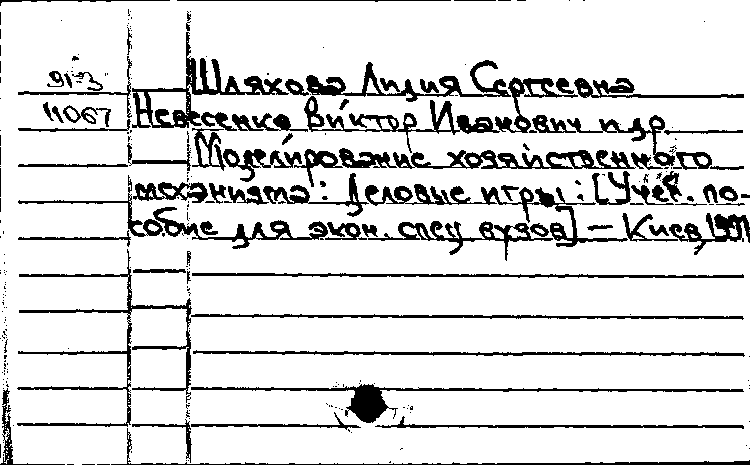 91-3 Шляхова Лидия Сергеевна
11067 Невесенко Виктор Иванович и др.
Моделирование хозяйственного
механизма: Деловые игры: [Учеб. по-
собие для экон. спец вузов] — Киев, 1991